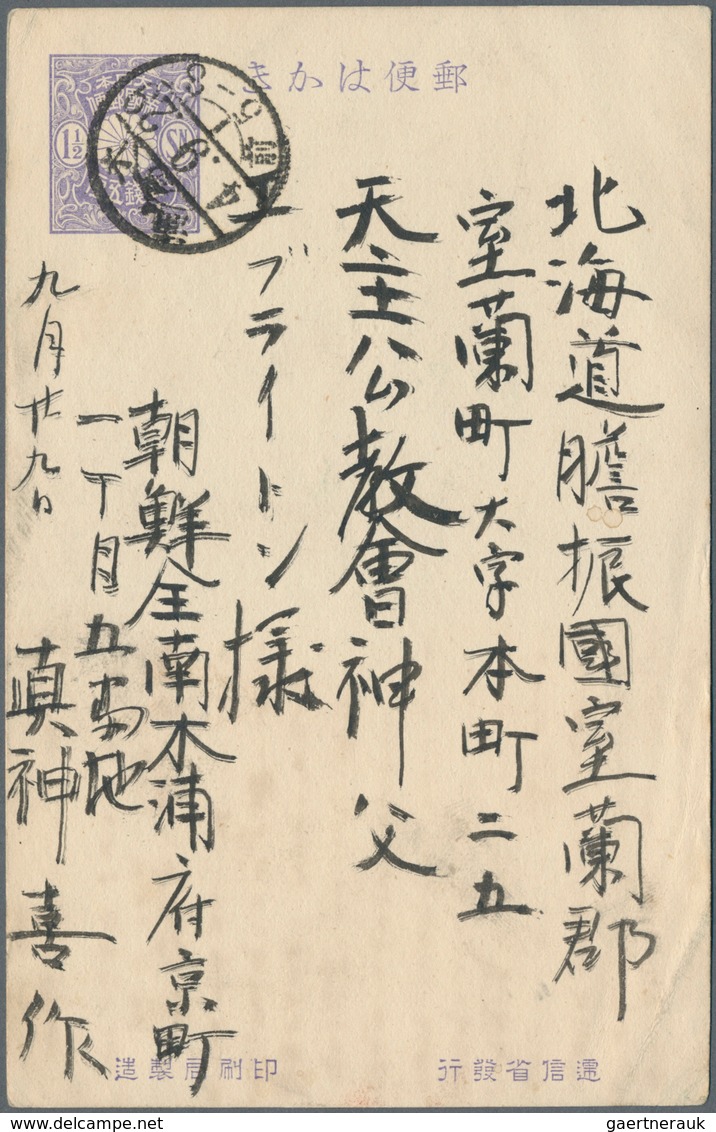 郵便はかき
1½ SN
北海道膽振國室蘭郡
室蘭町大字本町二五
天主公教會神父
エブライトン様
朝鮮全南木浦府京町
一丁目五番地
真神喜作
九月廿九日
遞信省發行
印刷局製造
gaertnerauk